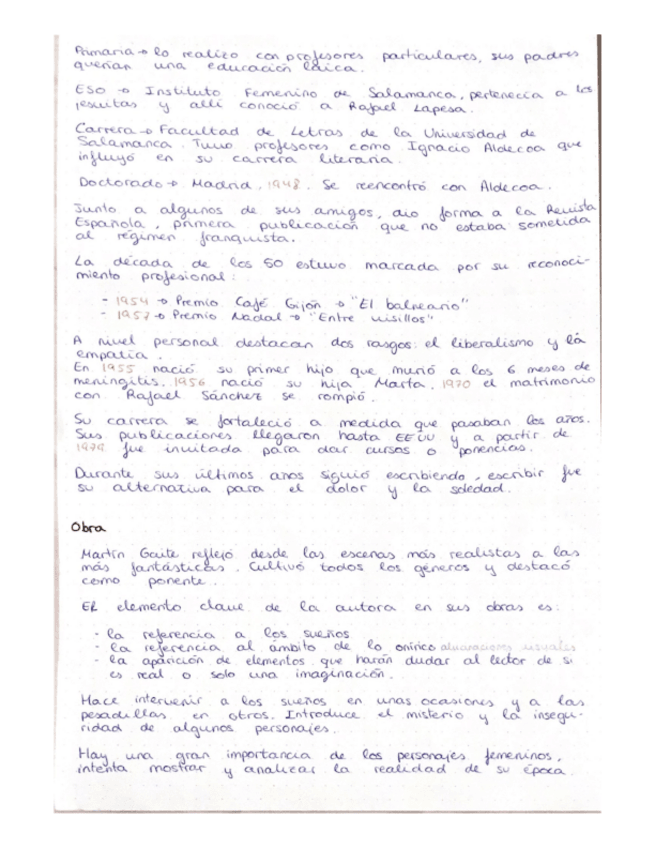 Primaria → lo realizó con profesores particulares, sus padres
querían una educación laica.
ESO → Instituto Femenino de Salamanca, pertenecía a los
jesuitas y allí conoció a Rafael Lapesa.
Carrera → Facultad de Letras de la Universidad de
Salamanca. Tuvo profesores como Ignacio Aldecoa que
influyó en su carrera literaria.
Doctorado → Madrid, 1948. Se reencontró con Aldecoa.
Junto a algunos de sus amigos, dio forma a la Revista
Española, primera publicación que no estaba sometida
al régimen franquista.
La década de los 50 estuvo marcada por su reconoci-
miento profesional:
- 1954 → Premio Café Gijón → "El balneario"
- 1957 → Premio Nadal → "Entre visillos"
A nivel personal destacan dos rasgos: el liberalismo y la
empatía.
En 1955 nació su primer hijo que murió a los 6 meses de
meningitis. 1956 nació su hija Marta. 1970 el matrimonio
con Rafael Sánchez se rompió.
Su carrera se fortaleció a medida que pasaban los años.
Sus publicaciones llegaron hasta EEUU y a partir de
1979 fue invitada para dar cursos o ponencias.
Durante sus últimos años siguió escribiendo, escribir fue
su alternativa para el dolor y la soledad.
Obra
Martín Gaite reflejó desde las escenas más realistas a las
más fantásticas. Cultivó todos los géneros y destacó
como ponente.
El elemento clave de la autora en sus obras es:
- la referencia a los sueños
- la referencia al ámbito de lo onírico alucinaciones visuales
- la aparición de elementos que harán dudar al lector de si
es real o solo una imaginación.
Hace intervenir a los sueños en unas ocasiones y a las
pesadillas en otros. Introduce el misterio y la insegu-
ridad de algunos personajes.
Hay una gran importancia de los personajes femeninos,
intenta mostrar y analizar la realidad de su época.